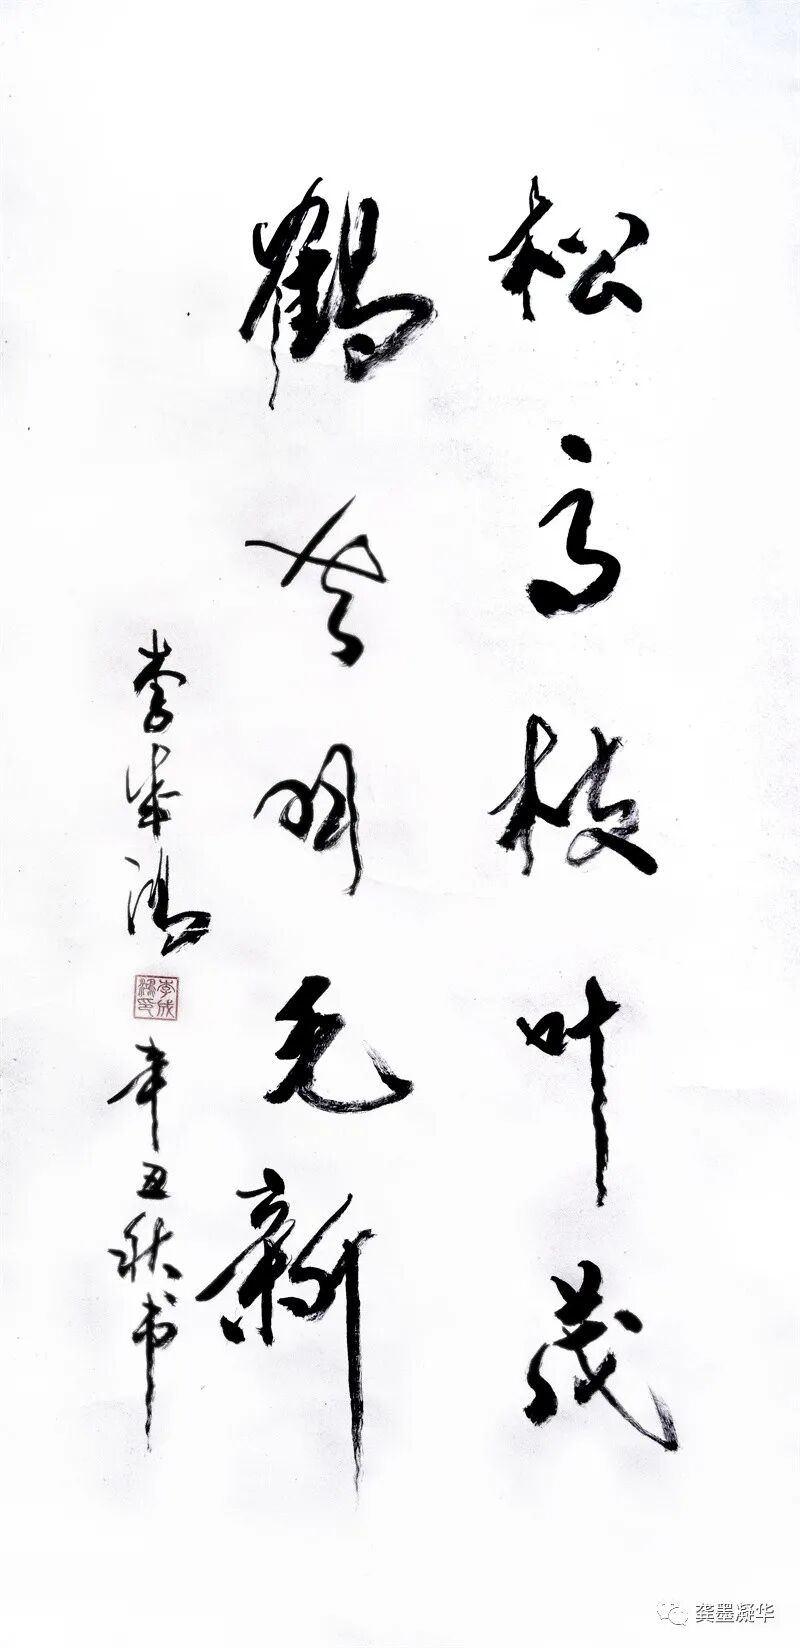 松高枝叶茂
鹤老羽毛新
李成鸿
李成鸿印
辛丑秋书
龚墨凝华